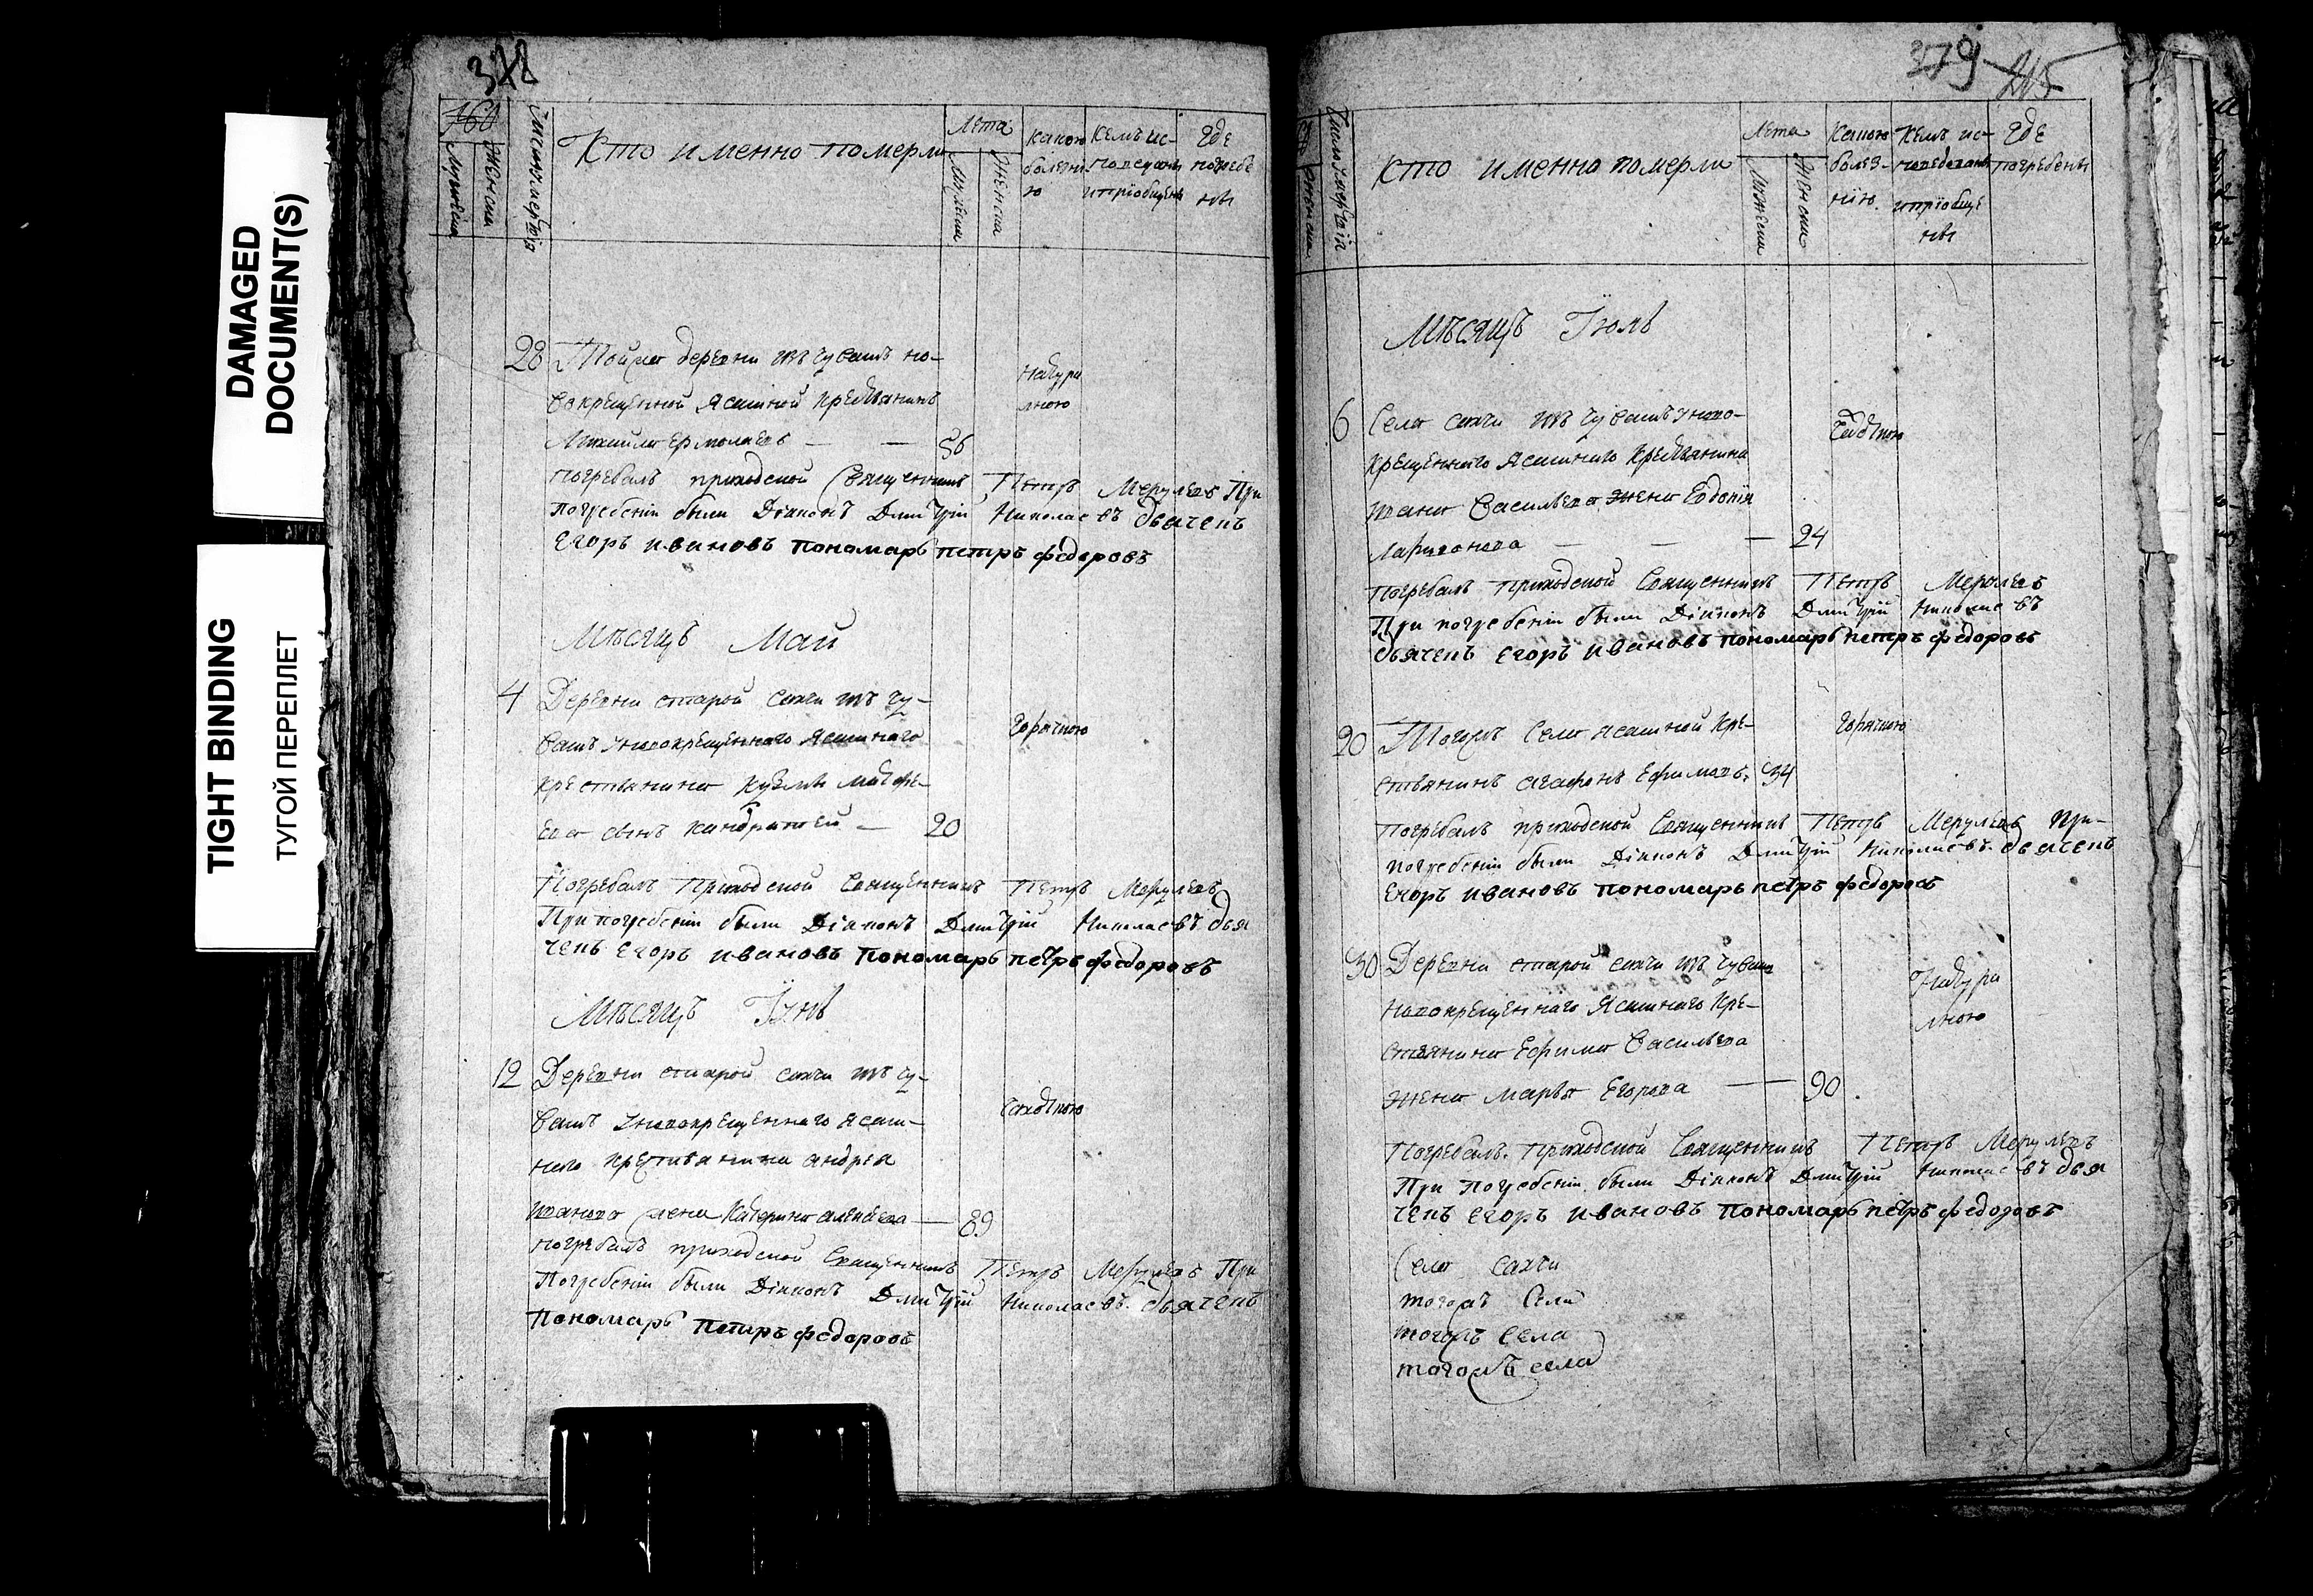 DAMAGED
DOCUMENT(S)
TIGHT BINDING
ТУГОЙ ПЕРЕПЛЕТ
Кто именно померли
Лета
какою
болезнi
ю
Кемъ ис-
поведаны
и прiобщены
Где
погребе
ны
мужеска
женска
28 Тойже деревни изъ чувашъ но-
вокрещенной ясашной крестьянинъ
Михайла Ермолаевъ — — 56
натура
лною
погребалъ приходской Священникъ Петръ Мерулевъ При
погребенiи были Дiаконъ Дмитрiй Николаевъ дьячекъ
Егоръ ивановъ пономарь петръ федоровъ
Мѣсяцъ Май
4 Деревни старой сахчи изъ чу-
вашъ новокрещеннаго ясашнаго
крестьянина кузмы матфе-
ева сынъ кандратей — 20
горячкою
Погребалъ Приходской Священникъ Петръ Мерулевъ
При погребенiи были Дiаконъ Дмитрiй Николаевъ дья
чекъ Егоръ ивановъ пономарь петръ федоровъ
Мѣсяцъ Iунь
12 Деревни старой сахчи изъ чу-
вашъ новокрещеннаго ясаш-
наго крестьянина андрея
иванова жена Катерина алексеева — 89
чахоткою
погребалъ приходской Священникъ Петръ Мерулевъ При
Погребенiи были Дiаконъ Дмитрiй Николаевъ дьячекъ
пономарь петръ федоровъ
279
Кто именно померли
Лета
Какою
болез-
нiю.
Кемъ ис-
поведаны
и прiобще
ны
Где
погребены
Женска
Мѣсяцъ Iюль
6 Села сахчи изъ чувашъ ново-
крещеннаго ясашнаго Крестьянина
ивана Васильева жена Евдокiя
Ларионова — — — 24
Погребалъ Приходской Священникъ Петръ Мерулевъ
При погребенiи были Дiаконъ Дмитрiй Николаевъ
дьячекъ Егоръ ивановъ пономарь петръ федоровъ
20 Тогожъ Села ясашной кре-
стьянинъ агафонъ Ефимовъ. 34
горячкою
Погребалъ приходской Священникъ Петръ Мерулевъ При-
погребенiи были Дiаконъ Дмитрiй Николаевъ. дьячекъ
Егоръ ивановъ пономарь петръ федоровъ
30 Деревни старой сахчи изъ чуваш
новокрещеннаго ясашнаго кре-
стьянина Ефима Васильева
жена Марья Егорова — — 90
Натура
лною
Погребалъ. Приходской Священникъ Петръ Мерулевъ
При Погребенiи были Дiаконъ Дмитрiй Николаевъ дья
чекъ Егоръ ивановъ пономарь петръ федоровъ
Села сахчи
тогожъ Села
тогожъ Села
тогожъ села